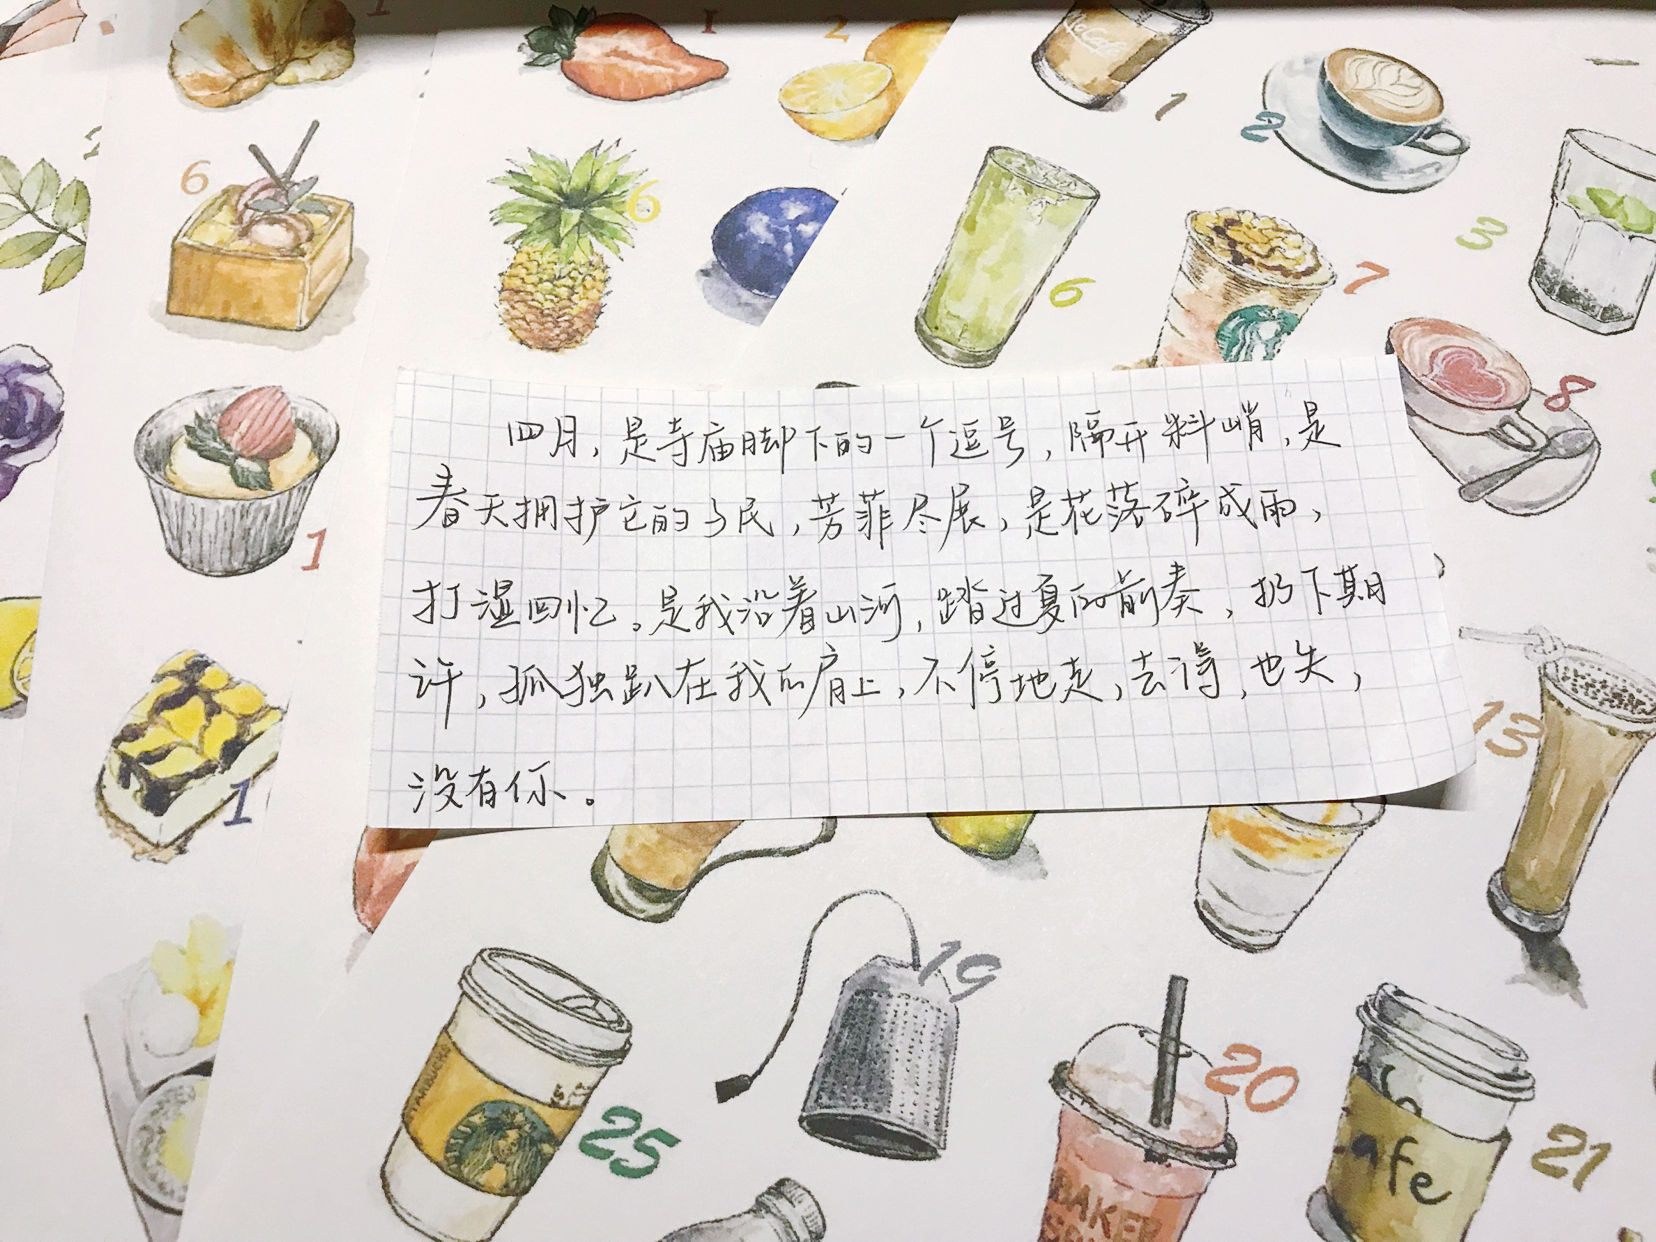 1
1
2
1
2
2
6
6
6
7
3
8
1
1
13
四月,是寺庙脚下的一个逗号,隔开料峭,是
春天拥护它的子民,芳菲尽展,是花落碎成雨,
打湿回忆。是我沿着山河,踏过夏的前奏,扔下期
许,孤独趴在我的肩上,不停地走,去得,也失,
没有你。
19
STARBUCKS
25
20
BAKER
cafe
21